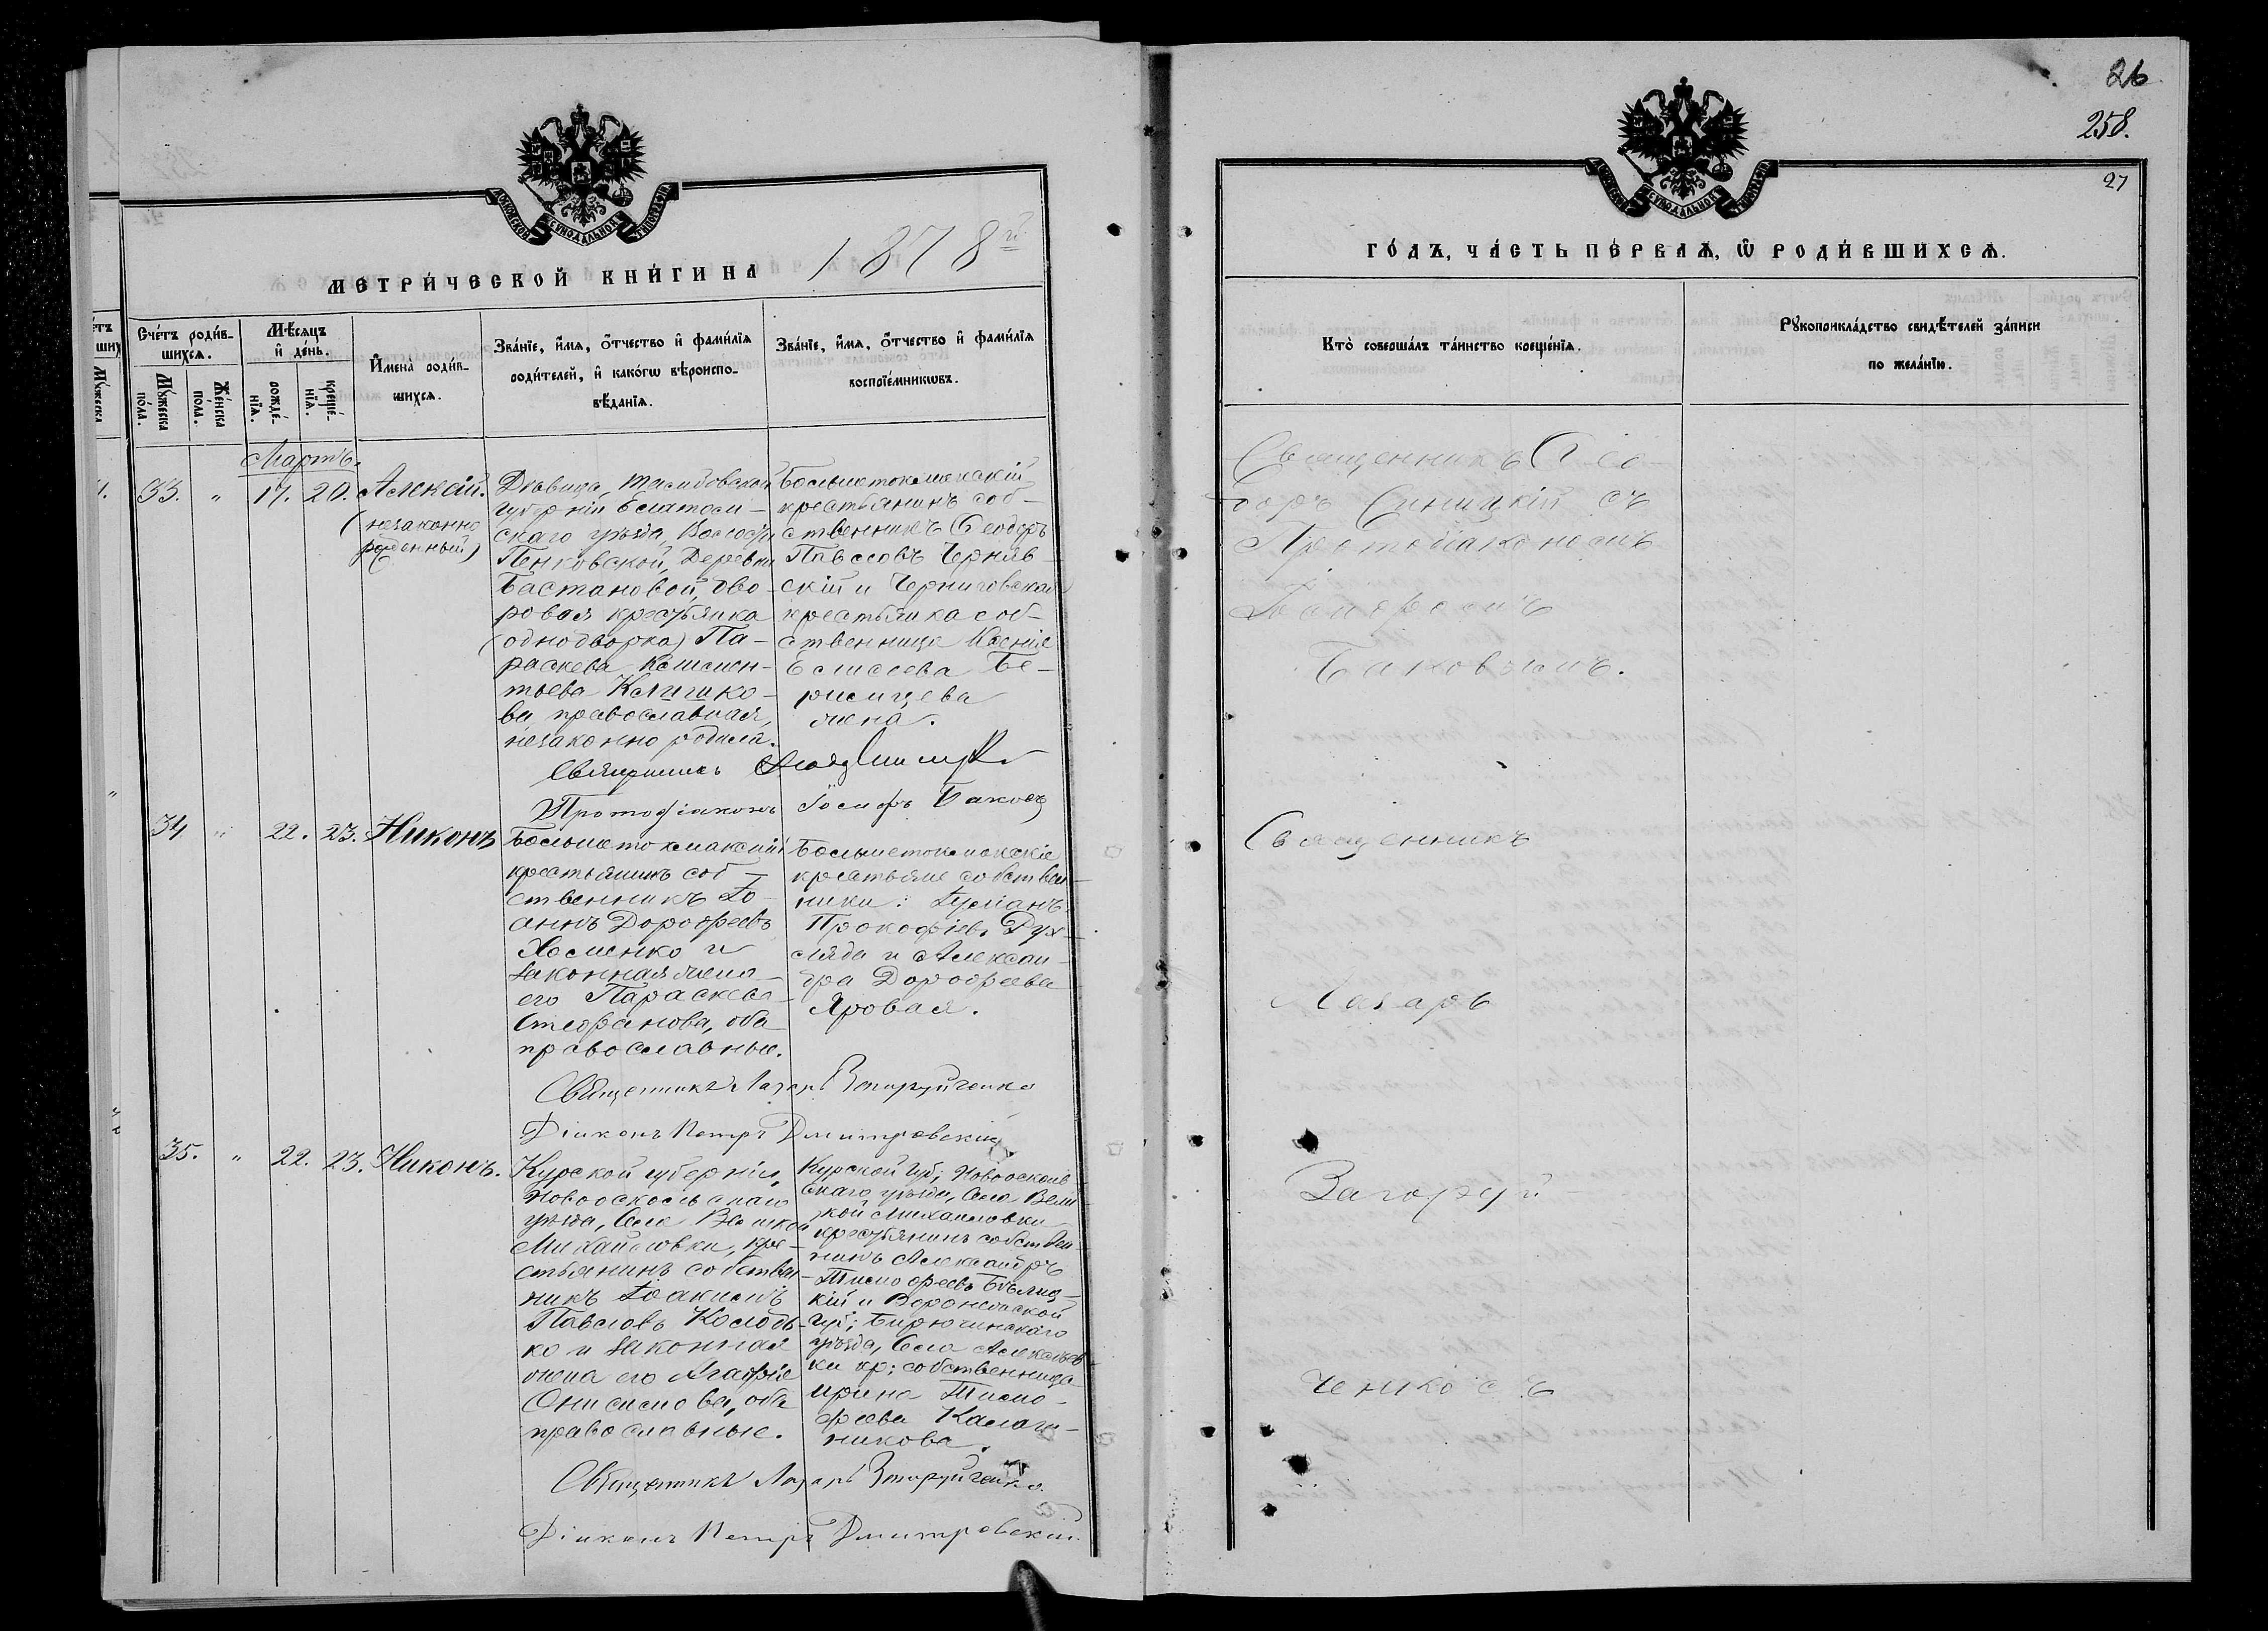 26
258.
27
МЕТРИ́ЧЕСКОЙ КНИ́ГИ НА 1878й
ГО́ДЪ, ЧА́СТЬ ПЕ́РВАѦ, Ѡ҆ РОДИ́ВШИХСѦ.
Сче́тъ роди́в-
шихсѧ.
Мꙋ́жеска по́ла.
Же́нска по́ла.
Мѣ́сѧцъ
и҆ де́нь.
рожде́-
нїѧ.
креще́-
нїѧ.
И҆мена̀ роди́в-
шихсѧ.
Зва́нїе, и҆́мѧ, ѻ҆́тчество и҆ фамилїѧ
роди́телей, и҆ како́гѡ вѣроиспо-
вѣ́данїѧ.
Зва́нїе, и҆́мѧ, ѻ҆́тчество и҆ фамилїѧ
воспрїе́мникѡвъ.
Кто̀ соверша́лъ та́инство креще́нїѧ.
Рꙋкоприкла́дство свидѣ́телей за́писи
по жела́нїю.
Мартъ.
33. " 17. 20. Алексій.
(незаконно
рожденный)
Дѣвица, Тамбовской
губерніи Елатом-
скаго уѣзда, Волости
Пенковской, Деревни
Бастановой, дво-
ровая крестьянка
(однодворка) Па-
раскева Климен-
тьева Клишко-
ва православная,
незаконно родила.
Большетокмакскій
крестьянинъ соб-
ственникъ Ѳеодоръ
Павловъ Черняв-
скій и Черниговская
крестьянка соб-
ственница Ксенія
Елисеева Бе-
рилицева
жена.
Священникъ
Протодіаконъ Іосифъ Баковъ
Священникъ Ѳео-
доръ Синицкій съ
Протодіакономъ
Іосифомъ
Баковымъ.
34 " 22. 23. Никонъ
Большетокмакскій
крестьянинъ соб-
ственникъ Іо-
аннъ Дороѳеевъ
Хоменко и
законная жена
его Параскева
Стефанова, оба
православные.
Большетокмакскіе
крестьяне собствен-
ники: Іуліанъ
Прокофіевъ Рух-
ляда и Алексан-
дра Дороѳеева
Яровая.
Священникъ Лазарь Загоруйченко
Діаконъ Петръ Дмитровскій
Священникъ
Лазарь
Загоруй-
ченко съ
35. " 22. 23. Никонъ.
Курской губерніи,
Новооскольскаго
уѣзда, Села Великой
Михайловки, кре-
стьянинъ собствен-
никъ Іоакимъ
Павловъ Колодь-
ко и законная
жена его Агафія
Онисимова, оба
православные.
Курской губ; Новоосколь
скаго уѣзда, Села Вели
кой Михайловки
крестьянинъ собствен-
никъ Александръ
Тимофеевъ Бѣлиц-
кій и Воронежской
губ; Бирюченскаго
уѣзда, Села Алексѣев
ки кр; собственница
Ирина Тимо-
феева Калаш-
никова.
Священникъ Лазарь Загоруйченко.
Діаконъ Петръ Дмитровскій.